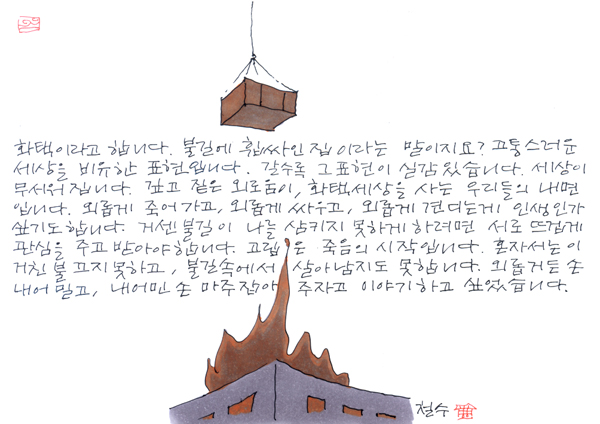 화택이라고 합니다. 불길에 휩싸인 집이라는 말이지요? 고통스러운
세상을 비유한 표현입니다. 갈수록 그 표현이 실감있습니다. 세상이
무서워집니다. 깊고 짙은 외로움이, 화택세상을 사는 우리들의 내면
입니다. 외롭게 죽어가고, 외롭게 싸우고, 외롭게 견디는게 인생인가
싶기도합니다. 거센 불길이 나를 삼키지 못하게 하려면 서로 뜨겁게
관심을 주고 받아야 합니다. 고립은 죽음의 시작입니다. 혼자서는 이
거친 불 끄지 못하고, 불길속에서 살아남지도 못합니다. 외롭거든 손
내어 밀고, 내어민 손 마주잡아 주자고 이야기하고 싶었습니다.
철수